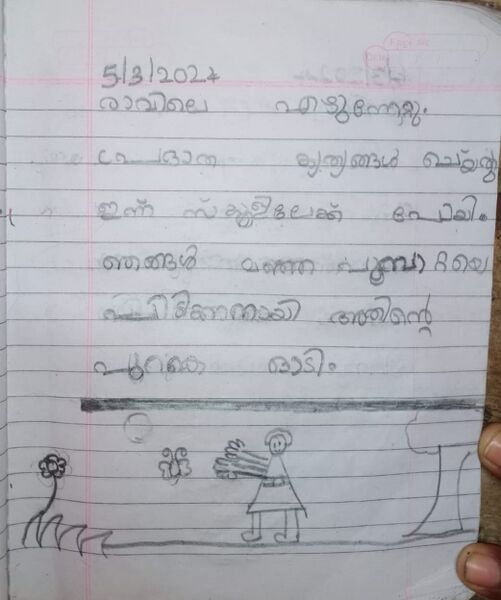 5/3/2024
രാവിലെ എഴുന്നേറ്റു.
പ്രഭാത കൃത്യങ്ങൾ ചെയ്തു
ഇന്ന് സ്കൂളിലേക്ക് പോയി.
ഞങ്ങൾ മഞ്ഞ പൂമ്പാറ്റയെ
പിടിക്കാനായി അതിന്റെ
പുറകെ ഓടി.